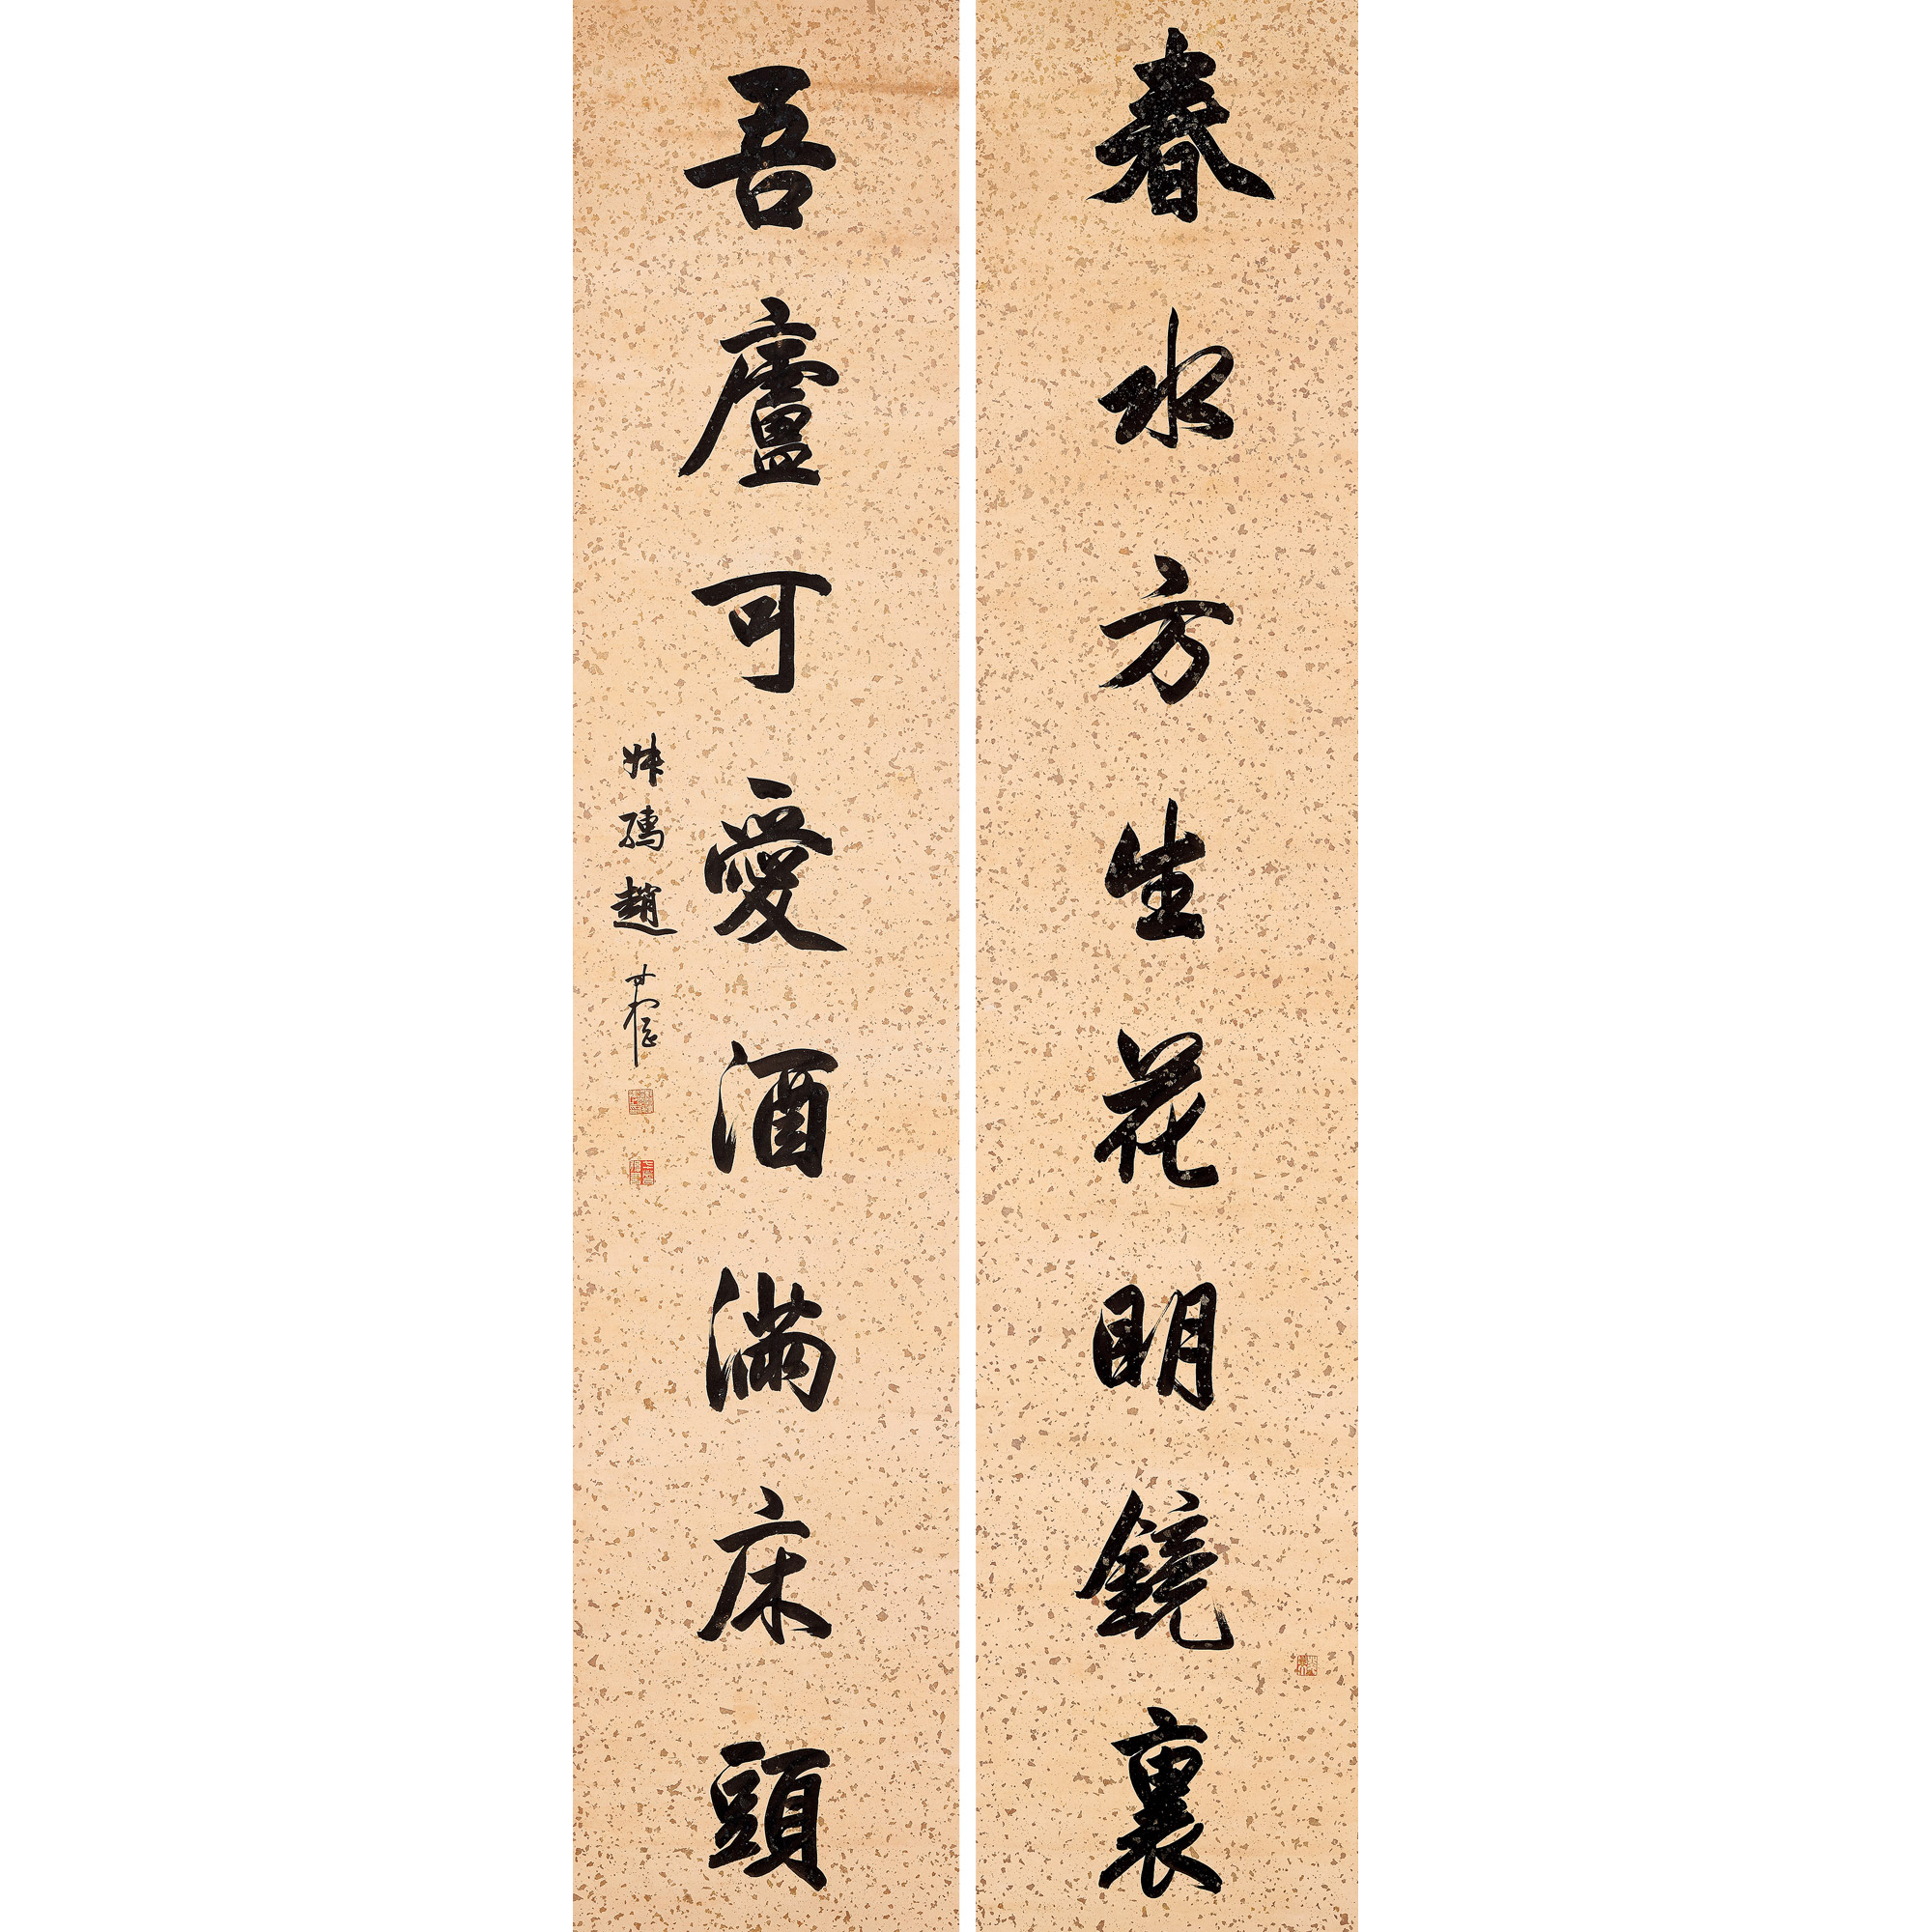 春水方生花明鏡裏
吾廬可愛酒滿床頭
叔孺趙時棡